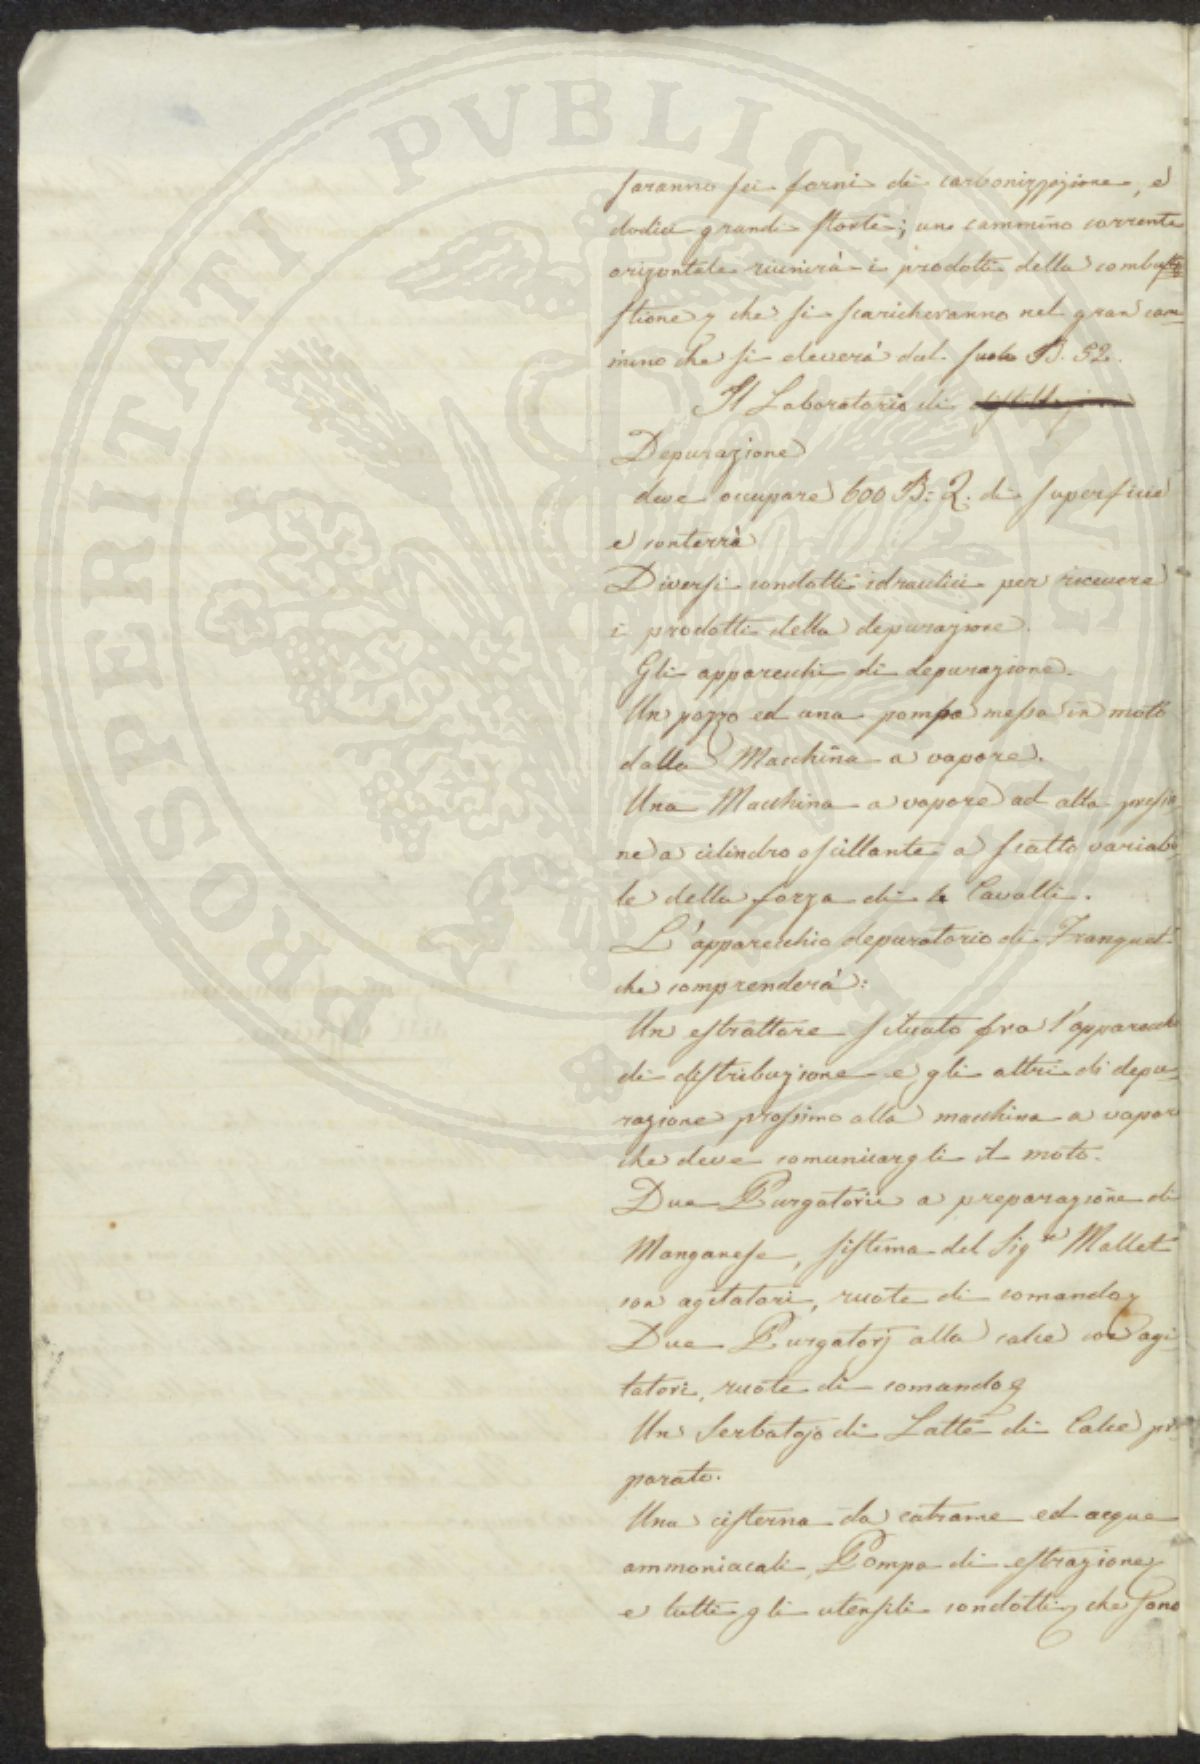 saranno sei forni di carbonizzazione, e
dodici grandi storte; uno cammino corrente
orizontale riunirà i prodotti della combu
stione, che si scaricheranno nel gran cam=
mino che si eleverà dal suolo B. 52.
Il Laboratorio di
Depurazione
deve occupare 600 B: Q. di superficie
e conterrà
Diversi condotti idraulici per ricevere
i prodotti della depurazione.
Gli apparecchi di depurazione.
Un pozzo ed una pompa messa in moto
dalla Macchina a vapore.
Una Macchina a vapore ad alta pressio=
ne a cilindro oscillante a scatto variabi=
le della forza di 4 Cavalli.
L'apparecchio depuratorio di Franquet
che comprenderà:
Un estrattore situato fra l'apparecchio
di distribuzione e gli altri di depu=
razione prossimo alla macchina a vapore
che deve comunicargli il moto.
Due Purgatorii a preparazione di
Manganese, sistema del Sigre Mallet
con agitatori, ruote di comando,
Due Purgatorj alla calce con agi=
tatori, ruote di comando,
Un Serbatojo di Latte di Calce pre=
parato.
Una cisterna da catrame ed acque
ammoniacali, Pompa di estrazione,
e tutti gli utensili condotti, che sono
PROSPERITATI PVBLICAE AVGENDAE